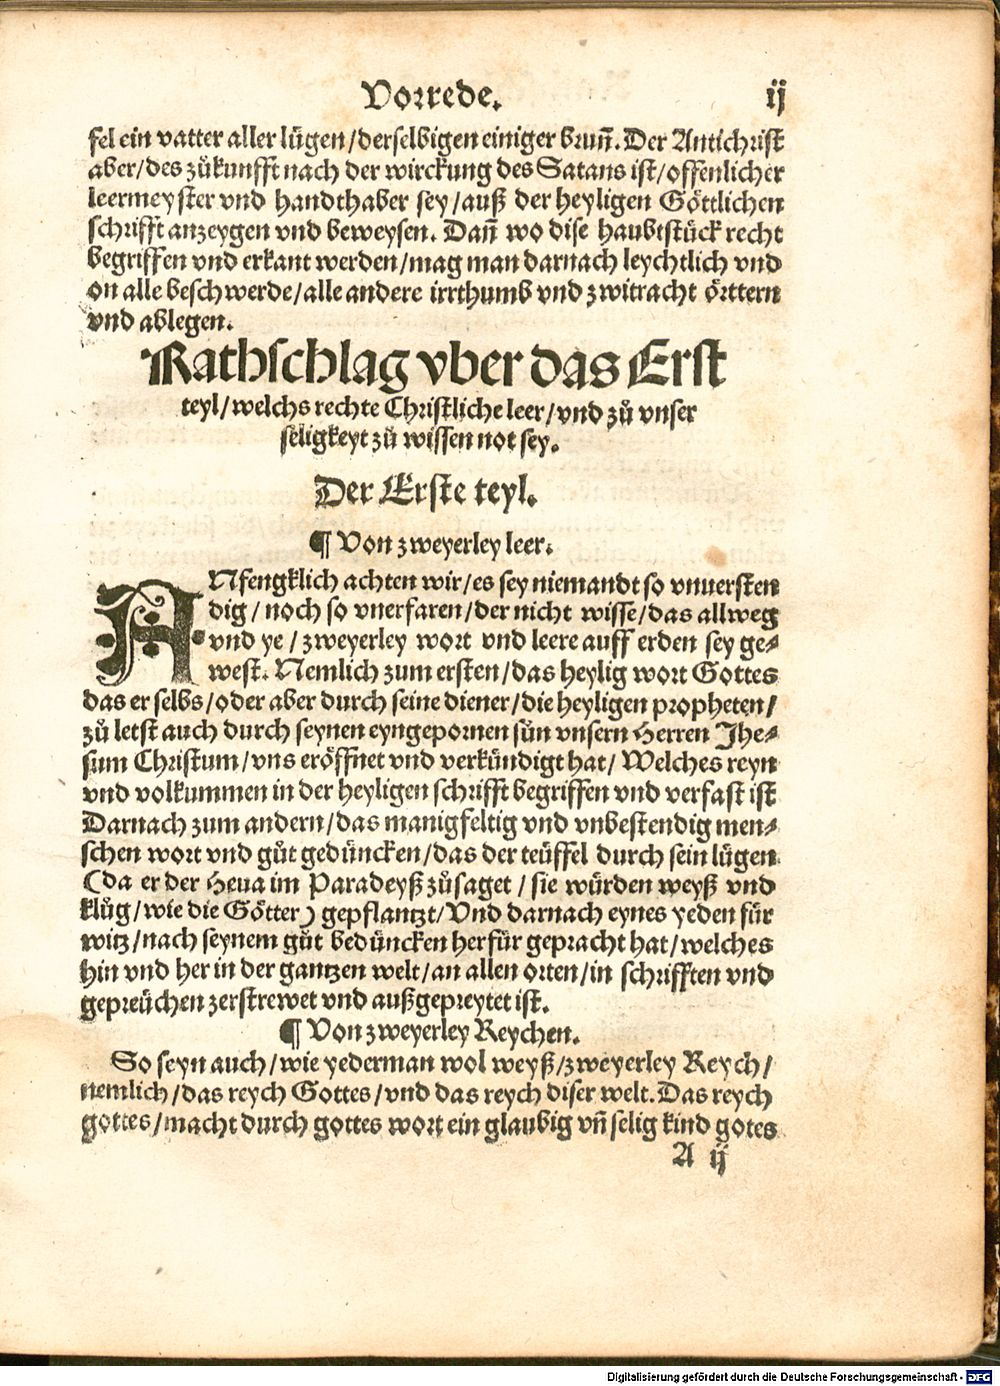 Vorrede. ij
fel ein vatter aller lügen/derselbigen einiger brun̄. Der Antichrist
aber/des zůkunfft nach der wirckung des Satans ist/offenlicher
leermeyster vnd handthaber sey/auß der heyligen Göttlichen
schrifft anzeygen vnd beweysen. Dan̄ wo dise haubtstück recht
begriffen vnd erkant werden/mag man darnach leychtlich vnd
on alle beschwerde/alle andere irrthumb vnd zwitracht örttern
vnd ablegen.
Rathschlag vber das Erst
teyl/welchs rechte Christliche leer/vnd zů vnser
seligkeyt zů wissen not sey.
Der Erste teyl.
¶ Von zweyerley leer.
ANfengklich achten wir/es sey niemandt so vnuersten
dig/noch so vnerfaren/der nicht wisse/das allweg
vnd ye/zweyerley wort vnd leere auff erden sey ge-
west. Nemlich zum ersten/das heylig wort Gottes
das er selbs/oder aber durch seine diener/die heyligen propheten/
zů letst auch durch seynen eyngepornen sůn vnsern Herren Jhe-
sum Christum/vns eröffnet vnd verkündigt hat/Welches reyn
vnd volkummen in der heyligen schrifft begriffen vnd verfast ist
Darnach zum andern/das manigfeltig vnd vnbestendig men-
schen wort vnd gůt gedüncken/das der teüffel durch sein lügen
(da er der Heua im Paradeyß zůsaget/sie würden weyß vnd
klůg/wie die Götter) gepflantzt/Vnd darnach eynes yeden für
witz/nach seynem gůt bedüncken herfür gepracht hat/welches
hin vnd her in der gantzen welt/an allen orten/in schrifften vnd
gepreüchen zerstrewet vnd außgepreytet ist.
¶ Von zweyerley Reychen.
So seyn auch/wie yederman wol weyß/zweyerley Reych/
nemlich/das reych Gottes/vnd das reych diser welt. Das reych
gottes/macht durch gottes wort ein glaubig vn̄ selig kind gotes
A ij
Digitalisierung gefördert durch die Deutsche Forschungsgemeinschaft - DFG